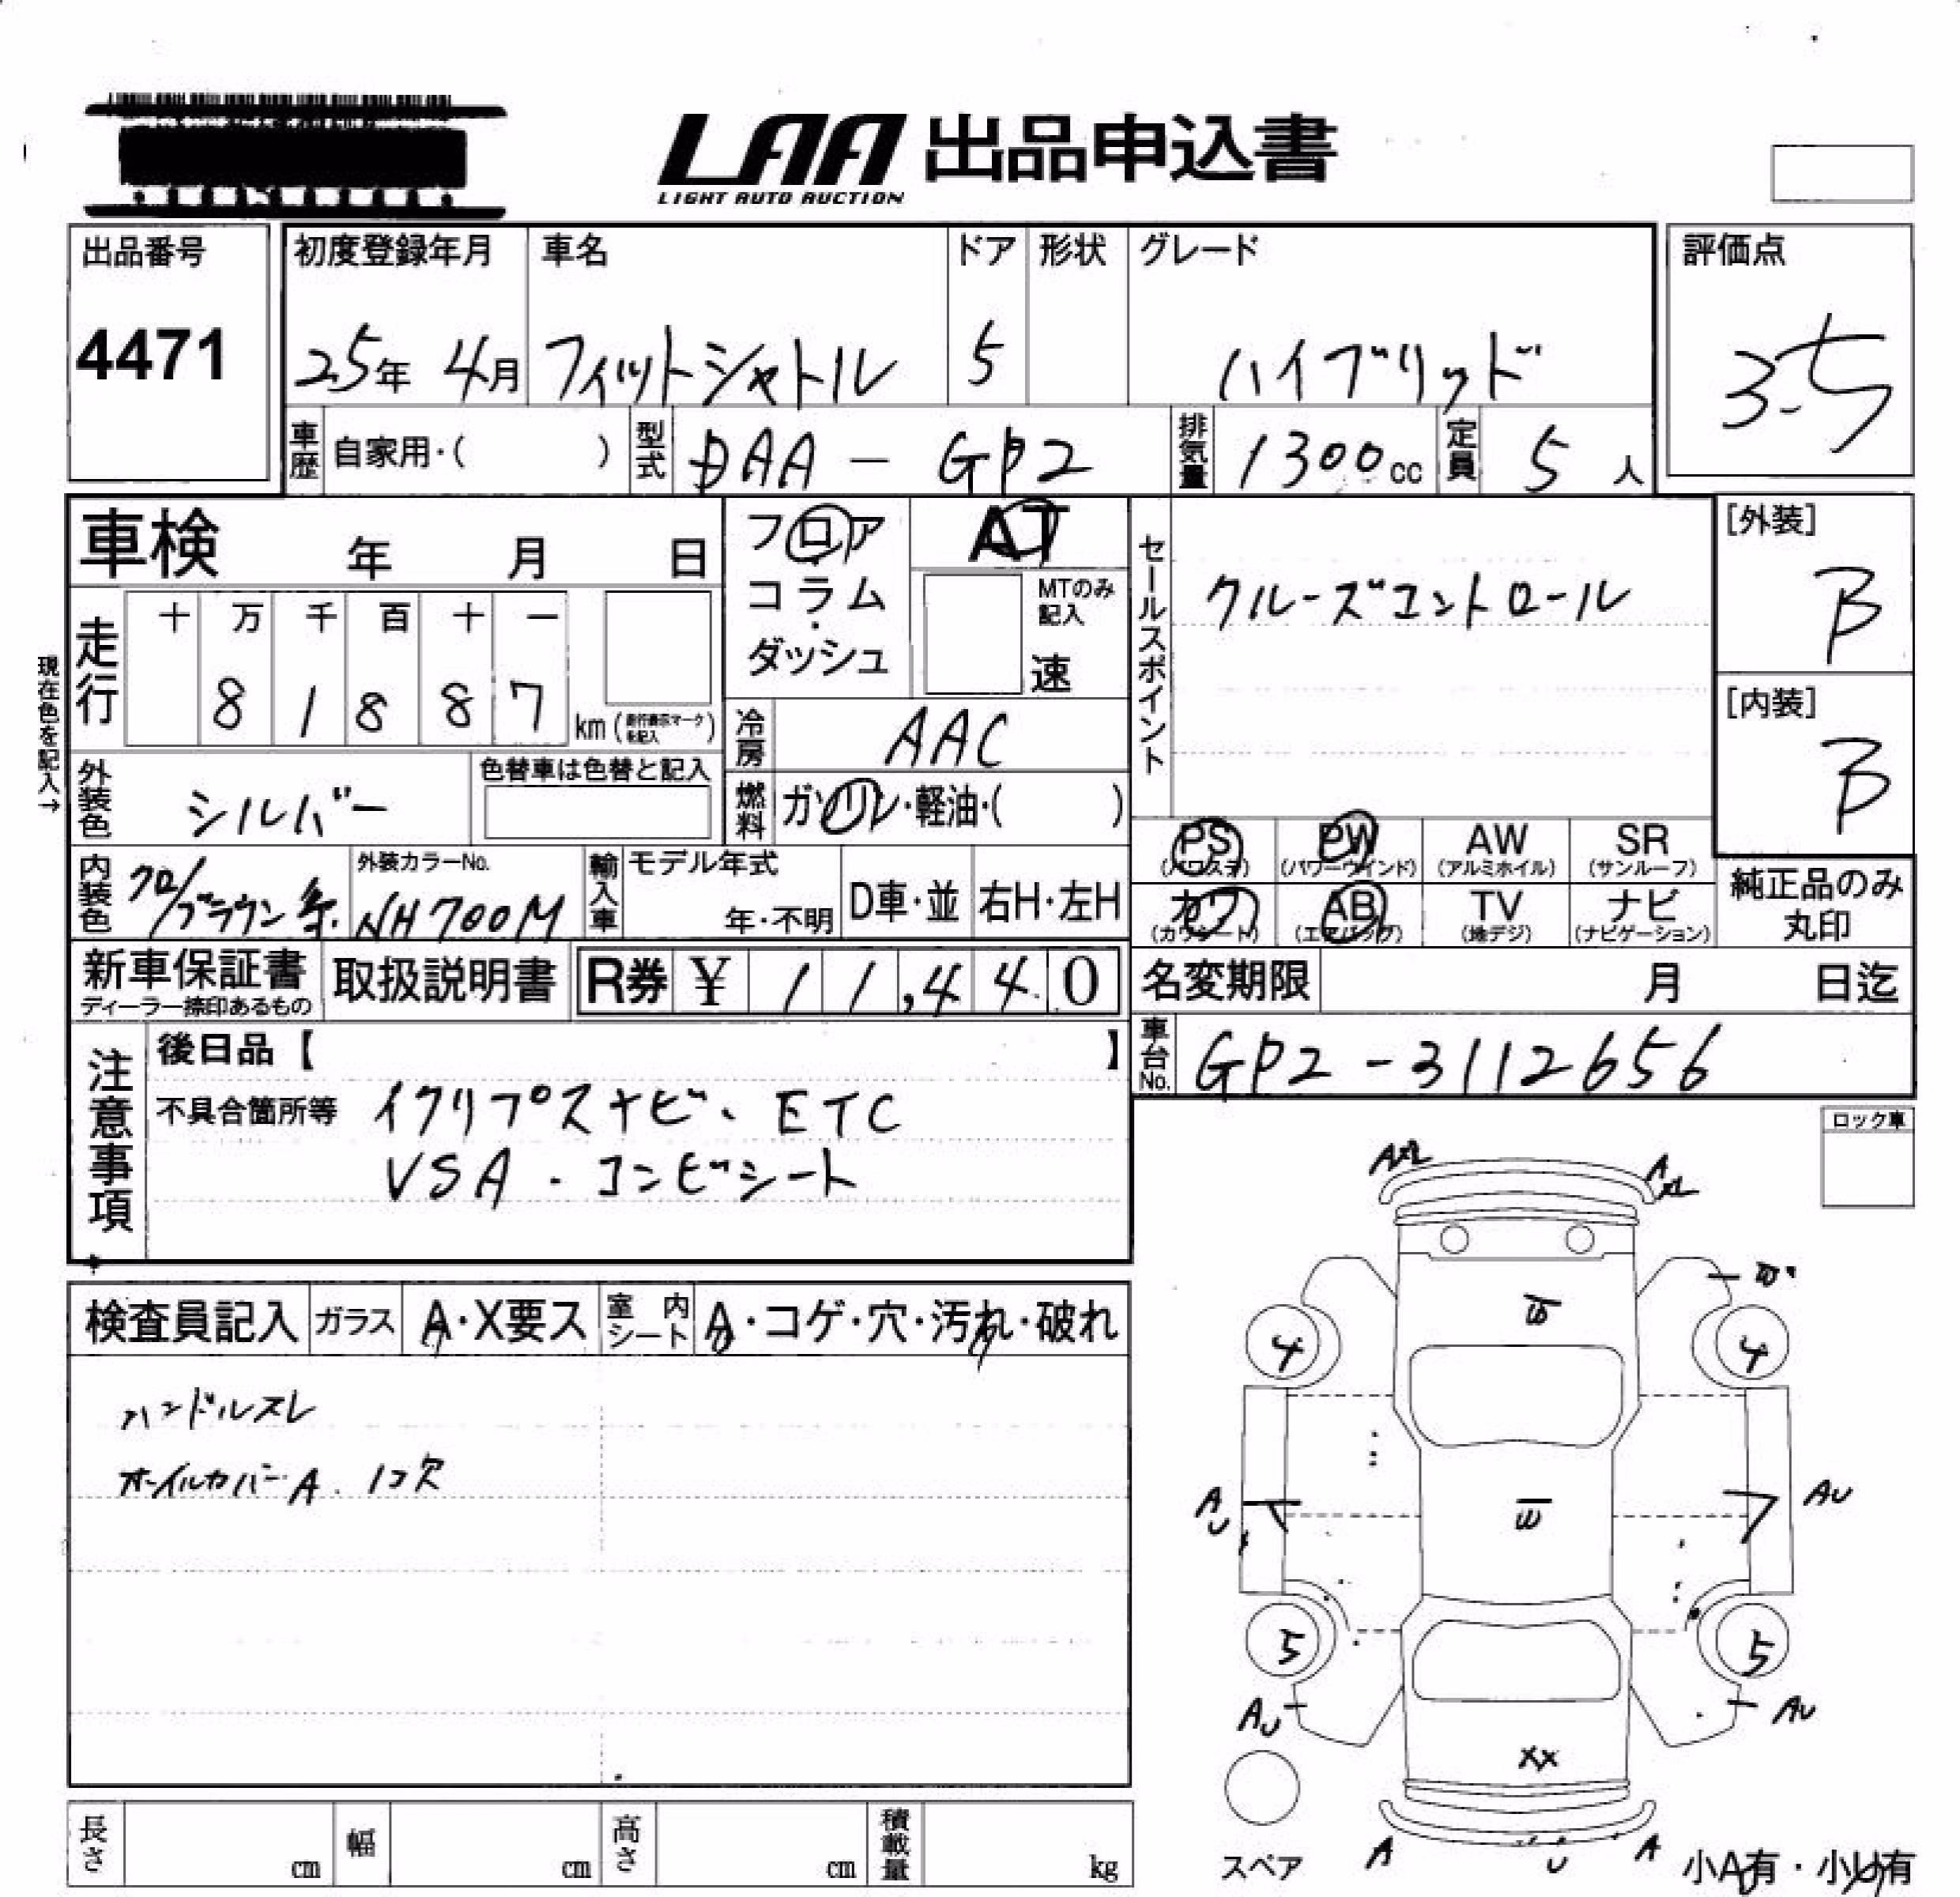 LAA 出品申込書
LIGHT AUTO AUCTION
出品番号
4471
初度登録年月 車名 ドア 形状 グレード
25年 4月 フィットシャトル 5 ハイブリッド
評価点
3.5
車歴 自家用・( ) 型式 DAA - GP2 排気量 1300cc 定員 5人
車検 年 月 日
フロア・コラム・ダッシュ
AT
MTのみ記入
速
セールスポイント
クルーズコントロール
[外装]
B
[内装]
B
現在色を記入→
走行 十 万 千 百 十 一
8 1 8 8 7 km (走行表示マークを記入)
冷房 AAC
外装色 シルバー 色替車は色替と記入
燃料 ガソリン・軽油・( )
PS (パワステ) PW (パワーウインド) AW (アルミホイル) SR (サンルーフ)
カワ (カワシート) AB (エアバッグ) TV (地デジ) ナビ (ナビゲーション)
純正品のみ丸印
内装色 クロ/ブラウン系 外装カラーNo. NH700M 輸入車 モデル年式 年・不明 D車・並 右H・左H
新車保証書 ディーラー捺印あるもの 取扱説明書 R券 ¥ 11,440
名変期限 月 日迄
車台No. GP2-3112656
注意事項
後日品【 】
不具合箇所等 イクリプスナビ、ETC
VSA・コンビシート
ロック車
検査員記入 ガラス A・X要ス 室内シート A・コゲ・穴・汚れ・破れ
ハンドルスレ
ホイルカバーA. 1コ欠
A A
4 4
AU AU
5 5
AU AU
XX
A U A
スペア
小A有・小U有
長さ cm 幅 cm 高さ cm 積載量 kg